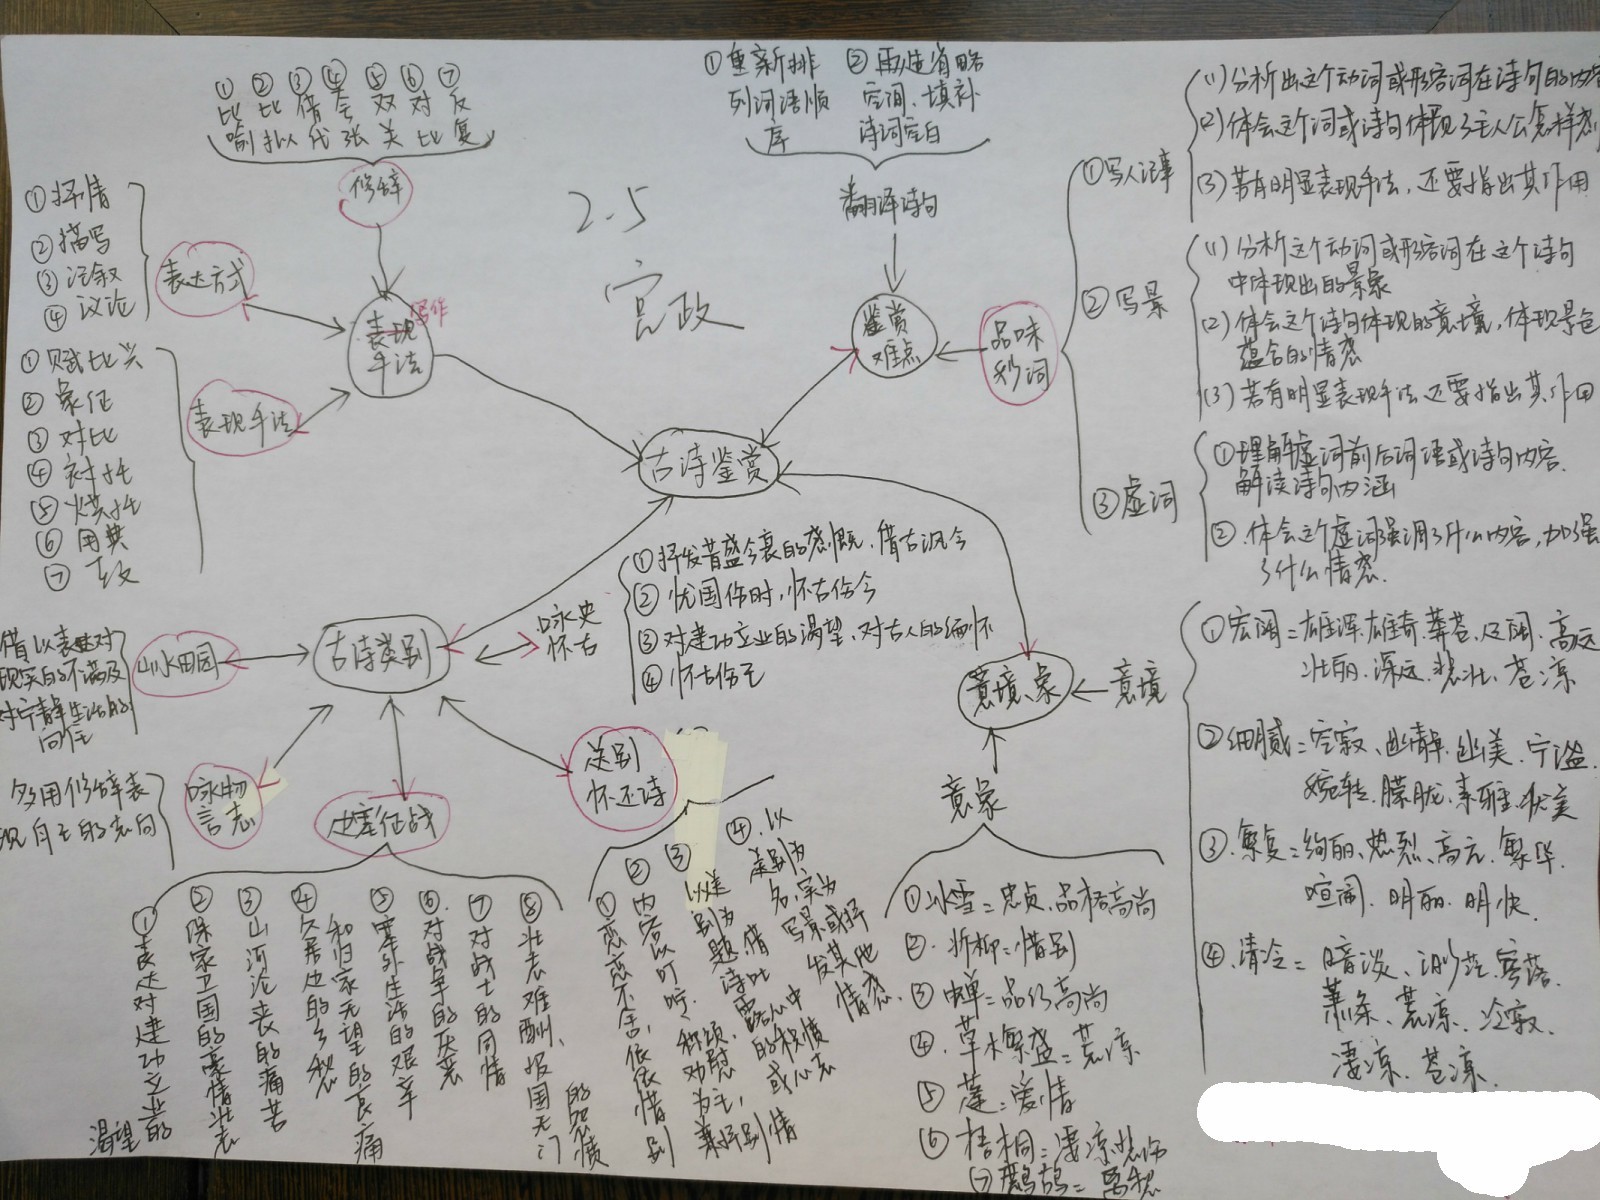 ①比喻
②比拟
③借代
④夸张
⑤双关
⑥对比
⑦反复
修辞
①抒情
②描写
③记叙
④议论
表达方式
表现
写作
手法
①赋比兴
②象征
③对比
④衬托
⑤烘托
⑥用典
⑦
表现手法
2.5
宫政
①重新排
列词语顺
序
②再造省略
空间、填补
诗词空白
翻译诗句
鉴赏
难点
品味
妙词
①写人记事
(1)分析出这个动词或形容词在诗句的内容
(2)体会这个词或诗句体现了主人公怎样
(3)若有明显表现手法，还要指出其作用
②写景
(1)分析这个动词或形容词在这个诗句
中体现出的景象
(2)体会这个诗句体现的意境，体现景色
蕴含的情感
(3)若有明显表现手法还要指出其作用
③虚词
①理解虚词前后词语或诗句内容.
解读诗句内涵
②.体会这个虚词强调了什么内容，加强
了什么情感.
古诗鉴赏
古诗类别
咏史
怀古
①抒发昔盛今衰的感慨、借古讽今
②忧国伤时，怀古伤今
③对建功立业的渴望、对古人的缅怀
④怀古伤己
山水田园
借以表达对
现实的不满及
对宁静生活的
向往
咏物
言志
多用修辞表
现自己的志向
边塞征战
①表达对建功立业的
渴望
②保家卫国的豪情壮志
③山河沦丧的痛苦
④久居边的乡愁
和归家无望的哀痛
⑤塞外生活的艰辛
⑥.对战争的厌恶
⑦对战士的同情
⑧壮志难酬、报国无门
的怨愤
送别
怀远诗
①恋恋不舍，依依惜别
②内容以叮咛、称颂、劝慰为主，兼抒别情
③以送别为题，借诗吐露心中的积愤或心志
④.以送别为名，实为写景或抒发其他情感.
意境、象
意境
意象
①冰雪=忠贞、品格高尚
②.折柳=惜别
③蝉=品行高尚
④.草木繁盛=荒凉
⑤莲=爱情
⑥梧桐=凄凉悲伤
⑦鹧鸪=
①宏阔=雄浑.雄奇.莽苍.辽阔.高远
壮丽.深远.悲壮、苍凉
②细腻=空寂、幽静.幽美.宁谧.
婉转.朦胧.素雅.优美
③.繁复=绚丽.热烈、高亢.繁华.
喧闹.明丽.明快.
④.清冷=暗淡、迷茫.寥落.
萧条、荒凉、冷寂.
凄凉.苍凉.